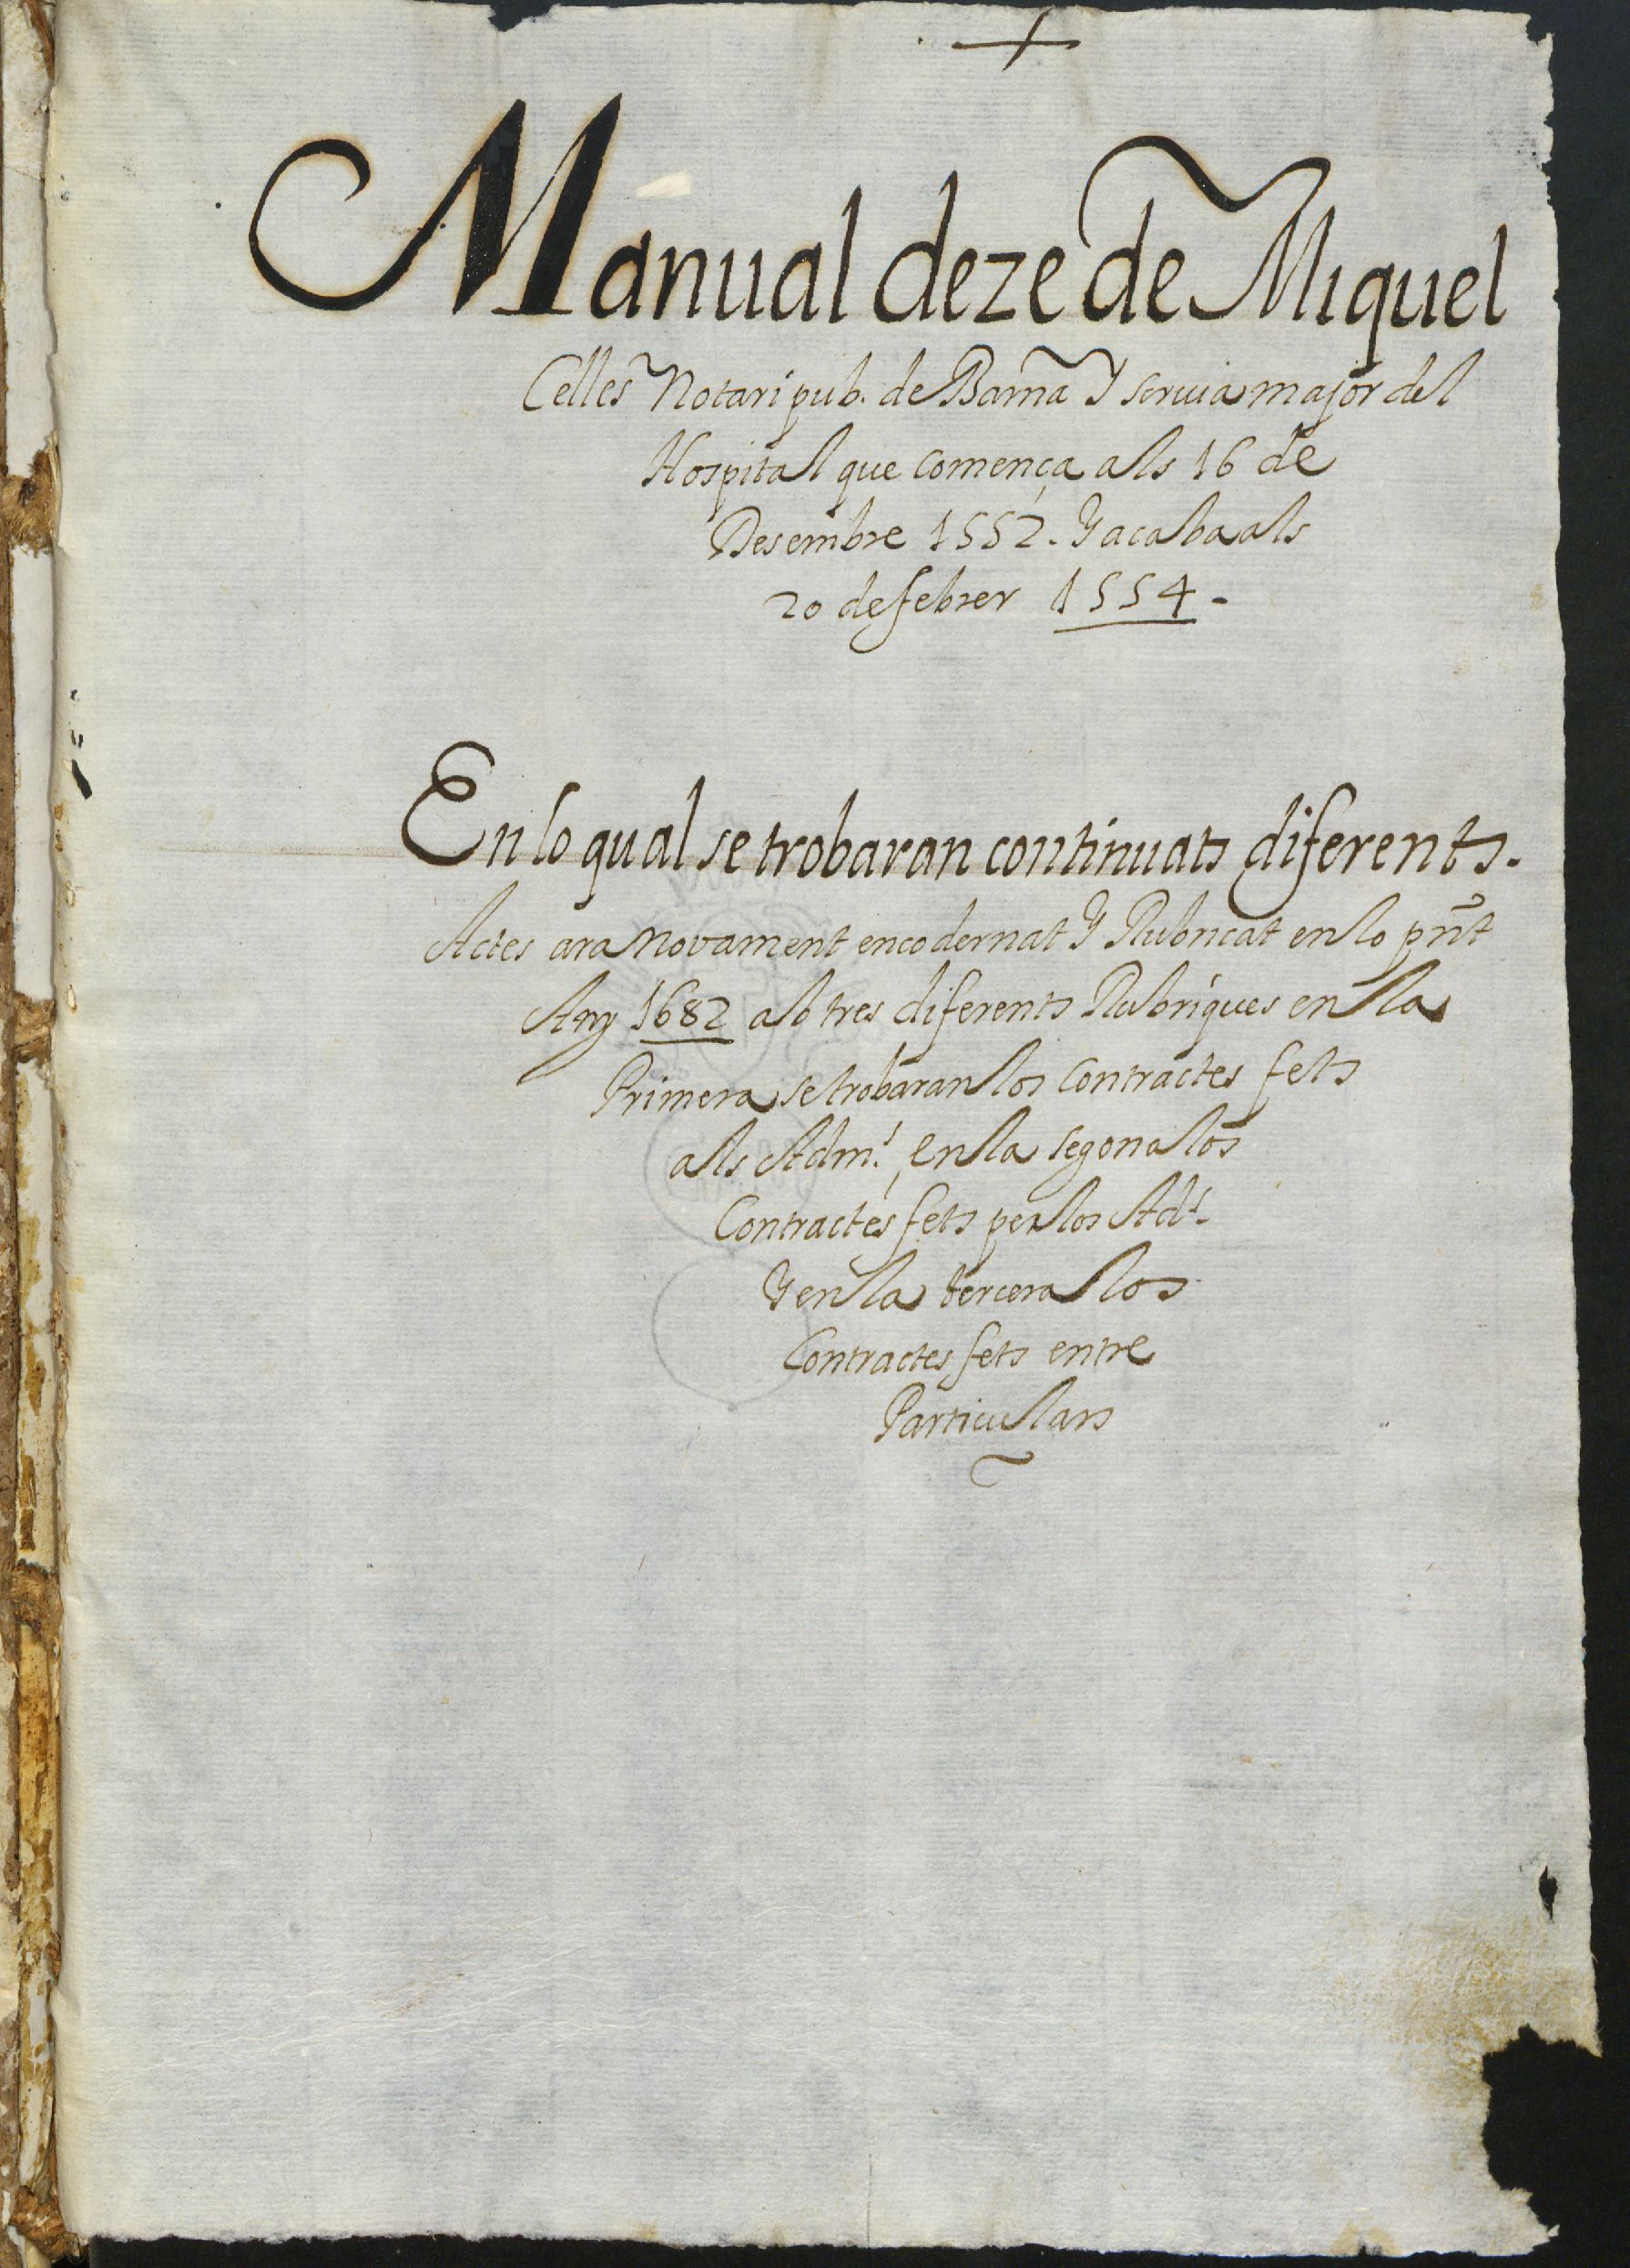 Manual deze de Miquel
Celles Notari pub. de Barna Y scruia major del
Hospital que comença als 16 de
Desembre 1552. Y acaba als
20 de febrer 1554.
En lo qual se trobaran continuats diferents.
Actes ara novament encodernat Y Rubricat en lo pñt
Any 1682 ab tres diferents Rubriques en la
Primera se trobaran los Contractes fets
als Adm.^s, en la segona los
Contractes fets per los Ad^s.
Y en la tercera los
Contractes fets entre
Particulars